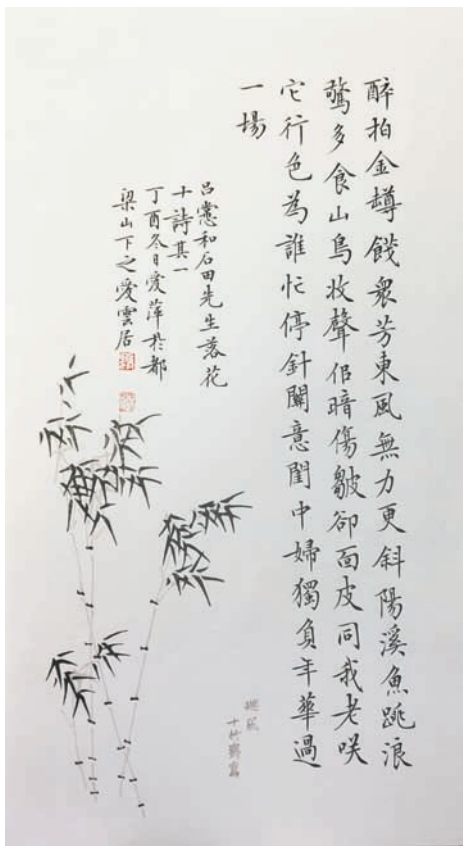 醉拍金罇餞衆芳東風無力更斜陽溪魚跳浪
驚多食山鳥收聲佀暗傷皺卻面皮同我老咲
它行色為誰忙停針闌意閨中婦獨負年華過
一場
呂㦂和石田先生落花
十詩其一
丁酉冬日愛萍於都
梁山下之愛雲居
十竹齋寫